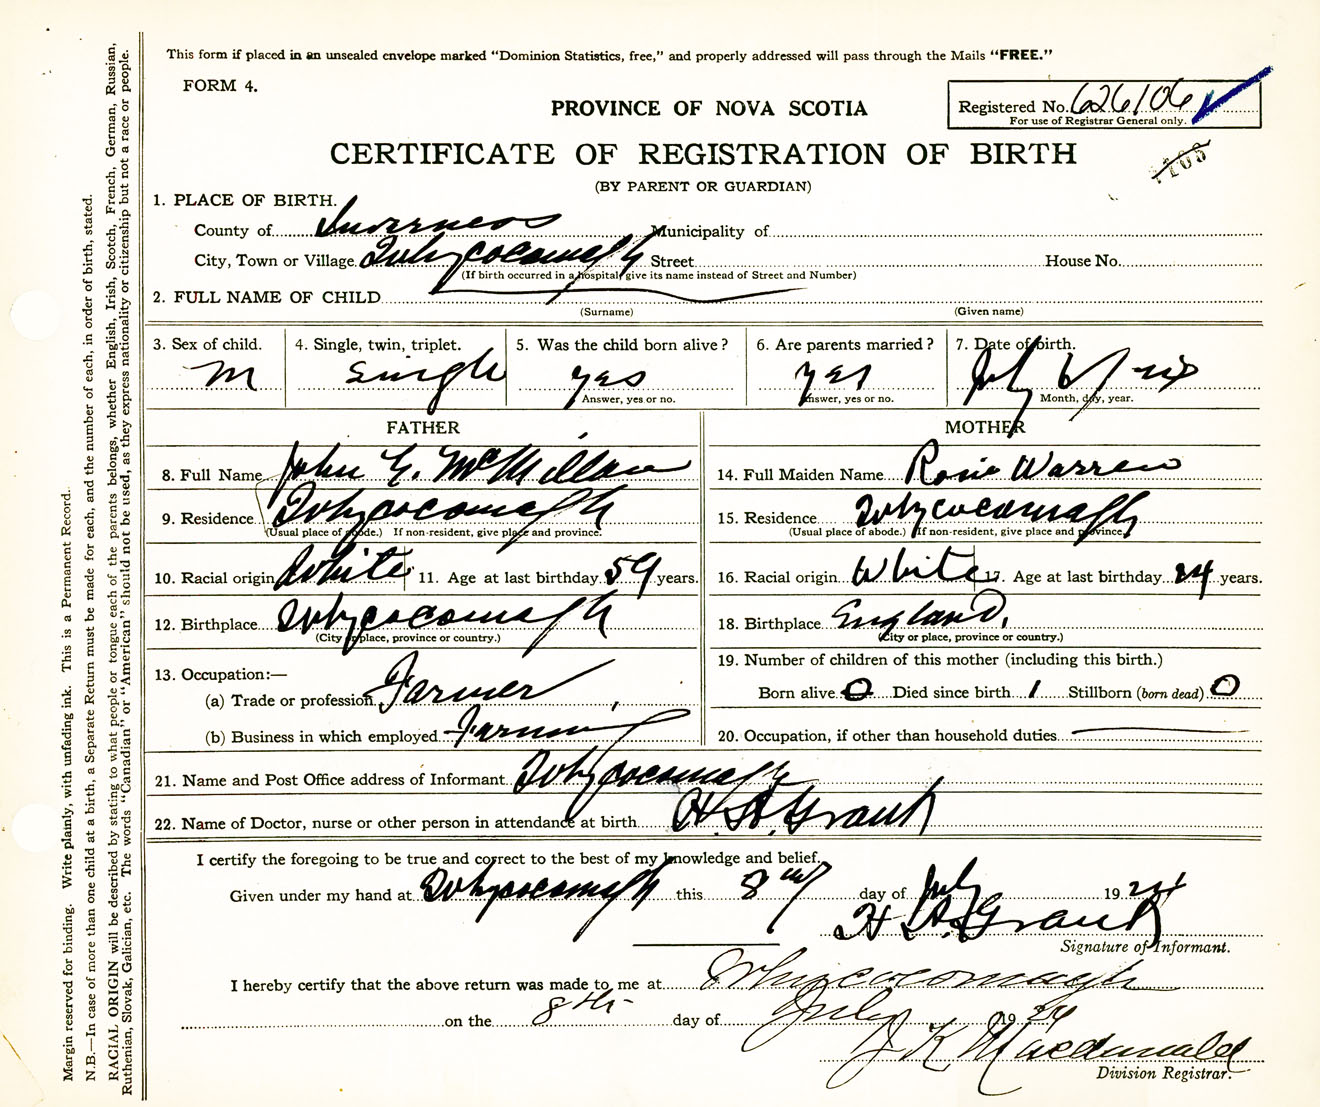 This form if placed in an unsealed envelope marked “Dominion Statistics, free,” and properly addressed will pass through the Mails “FREE.”
FORM 4.
Registered No. 626106
For use of Registrar General only.
PROVINCE OF NOVA SCOTIA
CERTIFICATE OF REGISTRATION OF BIRTH
(BY PARENT OR GUARDIAN)
1. PLACE OF BIRTH.
County of Inverness Municipality of
City, Town or Village Whycocomagh Street House No.
(If birth occurred in a hospital, give its name instead of Street and Number)
2. FULL NAME OF CHILD
(Surname) (Given name)
3. Sex of child. 4. Single, twin, triplet. 5. Was the child born alive? 6. Are parents married? 7. Date of birth.
M Single yes yes July
Answer, yes or no. Answer, yes or no. Month, day, year.
FATHER MOTHER
8. Full Name John E. McMillan 14. Full Maiden Name Rosie Warren
9. Residence Whycocomagh 15. Residence Whycocomagh
(Usual place of abode.) If non-resident, give place and province. (Usual place of abode.) If non-resident, give place and province.
10. Racial origin White 11. Age at last birthday 59 years. 16. Racial origin White 17. Age at last birthday 24 years.
12. Birthplace Whycocomagh 18. Birthplace England.
(City or place, province or country.) (City or place, province or country.)
13. Occupation:— 19. Number of children of this mother (including this birth.)
(a) Trade or profession Farmer Born alive 0 Died since birth 1 Stillborn (born dead) 0
(b) Business in which employed Farming 20. Occupation, if other than household duties
21. Name and Post Office address of Informant Whycocomagh
22. Name of Doctor, nurse or other person in attendance at birth H. A. Grant
I certify the foregoing to be true and correct to the best of my knowledge and belief.
Given under my hand at Whycocomagh this 8 day of July 1924
H. A. Grant
Signature of Informant.
I hereby certify that the above return was made to me at Whycocomagh
on the 8th day of July 1924
J K Macdonald
Division Registrar.
Margin reserved for binding. Write plainly, with unfading ink. This is a Permanent Record.
N.B.—In case of more than one child at a birth, a Separate Return must be made for each, and the number of each, in order of birth, stated.
RACIAL ORIGIN will be described by stating to what people or tongue each of the parents belongs, whether English, Irish, Scotch, French, German, Russian,
Ruthenian, Slovak, Galician, etc. The words “Canadian” or “American” should not be used, as they express nationality or citizenship but not a race or people.